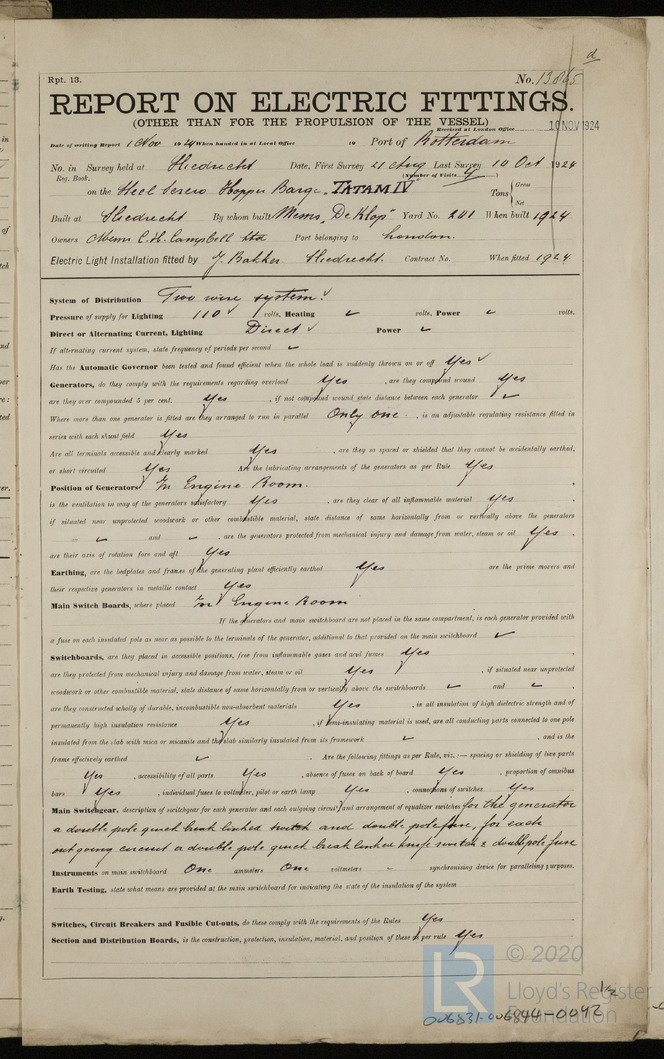 d
Rpt. 13.
No. 13865
REPORT ON ELECTRIC FITTINGS.
(OTHER THAN FOR THE PROPULSION OF THE VESSEL)
Received at London Office 10 NOV 1924
Date of writing Report 1 Nov 1924 When handed in at Local Office 19 Port of Rotterdam
No. in Survey held at Sliedrecht Date, First Survey 21 Aug Last Survey 10 Oct 1924
Reg. Book. (Number of Visits 4)
on the Steel Screw Hopper Barge "TATAM IV" Tons { Gross Net
Built at Sliedrecht By whom built Messrs "De Klop" Yard No. 201 When built 1924
Owners Messrs C. H. Campbell Ltd Port belonging to London.
Electric Light Installation fitted by J. Bakker Sliedrecht. Contract No. When fitted 1924.
System of Distribution Two wire system.
Pressure of supply for Lighting 110 volts, Heating ✓ volts, Power ✓ volts.
Direct or Alternating Current, Lighting Direct ✓ Power ✓
If alternating current system, state frequency of periods per second ✓
Has the Automatic Governor been tested and found efficient when the whole load is suddenly thrown on or off Yes ✓
Generators, do they comply with the requirements regarding overload Yes , are they compound wound Yes
are they over compounded 5 per cent. Yes , if not compound wound state distance between each generator ✓
Where more than one generator is fitted are they arranged to run in parallel Only one. , is an adjustable regulating resistance fitted in
series with each shunt field Yes
Are all terminals accessible and clearly marked Yes , are they so spaced or shielded that they cannot be accidentally earthed,
or short circuited Yes Are the lubricating arrangements of the generators as per Rule Yes
Position of Generators In Engine Room.
is the ventilation in way of the generators satisfactory Yes , are they clear of all inflammable material yes ,
if situated near unprotected woodwork or other combustible material, state distance of same horizontally from or vertically above the generators
✓ and ✓ , are the generators protected from mechanical injury and damage from water, steam or oil Yes .
are their axis of rotation fore and aft Yes
Earthing, are the bedplates and frames of the generating plant efficiently earthed Yes are the prime movers and
their respective generators in metallic contact Yes
Main Switch Boards, where placed In Engine Room
If the generators and main switchboard are not placed in the same compartment, is each generator provided with
a fuse on each insulated pole as near as possible to the terminals of the generator, additional to that provided on the main switchboard ✓
Switchboards, are they placed in accessible positions, free from inflammable gases and acid fumes Yes
are they protected from mechanical injury and damage from water, steam or oil Yes , if situated near unprotected
woodwork or other combustible material, state distance of same horizontally from or vertically above the switchboards ✓ and ✓ ,
are they constructed wholly of durable, incombustible non-absorbent materials Yes , is all insulation of high dielectric strength and of
permanently high insulation resistance Yes , if semi-insulating material is used, are all conducting parts connected to one pole
insulated from the slab with mica or micanite and the slab similarly insulated from its framework ✓ , and is the
frame effectively earthed ✓ . Are the following fittings as per Rule, viz.:— spacing or shielding of live parts
Yes , accessibility of all parts Yes , absence of fuses on back of board Yes , proportion of omnibus
bars Yes , individual fuses to voltmeter, pilot or earth lamp Yes , connections of switches Yes
Main Switchgear, description of switchgear for each generator and each outgoing circuit and arrangement of equalizer switches for the generator
a double pole quick break linked switch and double pole fuse, for each
outgoing circuit a double pole quick break linked knife switch & double pole fuse
Instruments on main switchboard One ammeters One voltmeters - synchronising device for paralleling purposes.
Earth Testing, state what means are provided at the main switchboard for indicating the state of the insulation of the system
Switches, Circuit Breakers and Fusible Cut-outs, do these comply with the requirements of the Rules Yes
Section and Distribution Boards, is the construction, protection, insulation, material, and position of these as per rule Yes
© 2020
LR Lloyd's Register
Foundation
1/2
006831-006844-0042